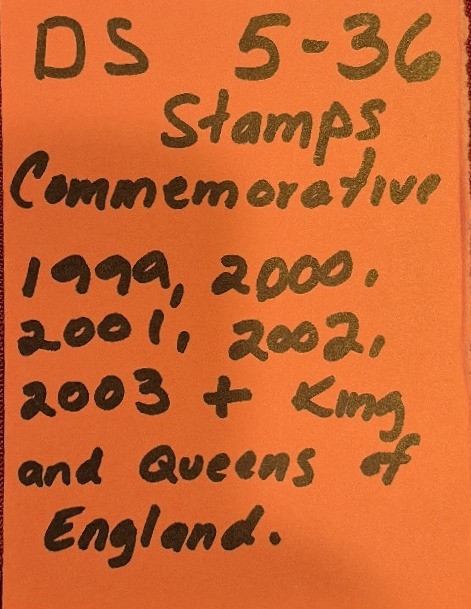 DS 5-36
Stamps
Commemorative
1999, 2000,
2001, 2002,
2003 + King
and Queens of
England.